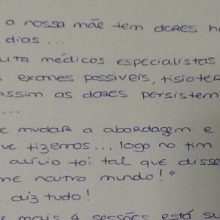 a nossa mãe tem DORES h
dias...
uta médicos especialistas
s exames possíveis, fisioter
assim as dores persistem
e mudar a abordagem e
ue fizemos... logo no fim
alívio foi tal que disse
me noutro mundo!"
diz tudo!
e mais 4 sessões está su